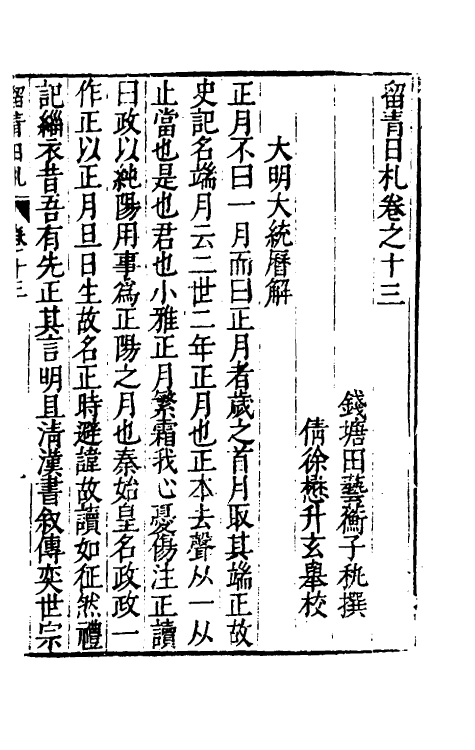 留青日札卷之十三
錢塘田藝蘅子秇撰
倩徐懋升玄舉校
大明大統曆解
正月不曰一月而曰正月者歲之首月取其端正故
史記名端月云二世二年正月也正本去聲从一从
止當也是也君也小雅正月繁霜我心憂傷注正讀
曰政以純陽用事爲正陽之月也秦始皇名政政一
作正以正月旦日生故名正時避諱故讀如征然禮
記緇衣昔吾有先正其言明且淸漢書叙傳奕世宗
留青日札 卷十三